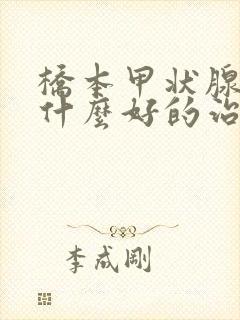 橋本甲状腺
什麼好的治
李成剛